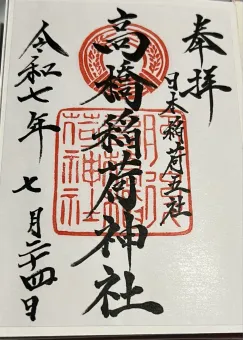 奉拝
日本稲荷五社
高橋稲荷神社
令和七年
七月二十四日